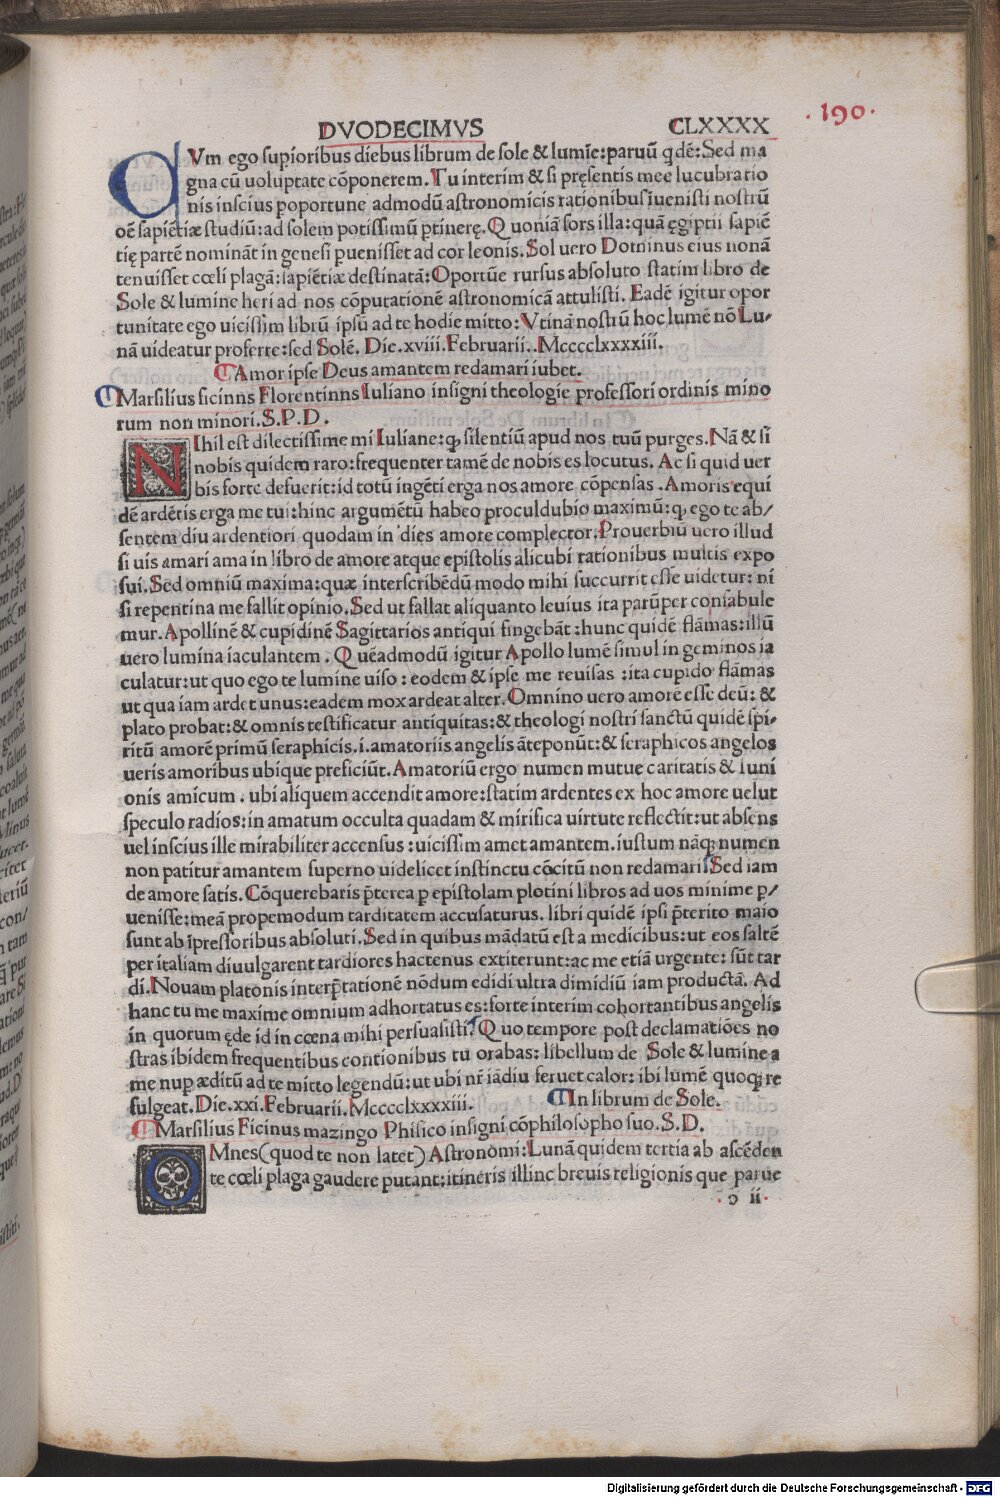 DVODECIMVS CLXXXX
.190.
CVm ego supioribus diebus librum de sole & lumĩe: paruũ qdẽ: Sed ma
gna cũ uoluptate cõponerem. Tu interim & si pręsentis mee lucubratio
nis inscius poportune admodũ astronomicis rationibus iuenisti nostrũ
oẽ sapiẽtiæ studiũ: ad solem potissimũ ptinerę. Quoniã sors illa: quã ęgiptii sapiẽ
tię partẽ nominãt in genesi puenisset ad cor leonis. Sol uero Dominus eius nonã
tenuisset cœli plagã: sapiẽtiæ destinatã: Oportũe rursus absoluto statim libro de
Sole & lumine heri ad nos cõputationẽ astronomicã attulisti. Eadẽ igitur opor
tunitate ego uicissim librũ ipsũ ad te hodie mitto: Vtinã nostrũ hoc lumẽ nõ Lu-
nã uideatur proferre: sed Solẽ. Die. xviii. Februarii.. Mcccclxxxxiii.
Amor ipse Deus amantem redamari iubet.
Marsilius ficinns Florentinns Iuliano insigni theologie professori ordinis mino
rum non minori. S. P. D.
NIhil est dilectissime mi Iuliane: q silentiũ apud nos tuũ purges. Nã & si
nobis quidem raro: frequenter tamẽ de nobis es locutus. Ac si quid uer
bis forte defuerit: id totũ ingẽti erga nos amore cõpensas. Amoris equi
dẽ ardẽtis erga me tui: hinc argumẽtũ habeo proculdubio maximũ: q ego te ab/
sentem diu ardentiori quodam in dies amore complector. Prouerbiũ uero illud
si uis amari ama in libro de amore atque epistolis alicubi rationibus multis expo
sui. Sed omniũ maxima: quæ inter scribẽdũ modo mihi succurrit esse uidetur: ni
si repentina me fallit opinio. Sed ut fallat aliquanto leuius ita parũper confabule
mur. Apollinẽ & cupidinẽ Sagittarios antiqui fingebãt: hunc quidẽ flãmas: illũ
uero lumina iaculantem. Quẽadmodũ igitur Apollo lumẽ simul in geminos ia
culatur: ut quo ego te lumine uiso: eodem & ipse me reuisas: ita cupido flãmas
ut qua iam ardet unus: eadem mox ardeat alter. Omnino uero amore esse deũ: &
plato probat: & omnis testificatur antiquitas: & theologi nostri sanctũ quidẽ spi-
ritũ amorẽ primũ seraphicis. i. amatoriis angelis ãteponũt: & seraphicos angelos
ueris amoribus ubique preficiũt. Amatoriũ ergo numen mutue caritatis & Iuni
onis amicum. ubi aliquem accendit amore: statim ardentes ex hoc amore uelut
speculo radios: in amatum occulta quadam & mirifica uirtute reflectit: ut absens
uel inscius ille mirabiliter accensus: uicissim amet amantem. iustum nãq numen
non patitur amantem superno uidelicet instinctu cõcitũ non redamari. Sed iam
de amore satis. Cõquerebaris p̃terea p epistolam plotini libros ad uos minime p/
uenisse: meã propemodum tarditatem accusaturus. libri quidẽ ipsi p̃terito maio
sunt ab ĩpressoribus absoluti. Sed in quibus mãdatũ est a medicibus: ut eos saltẽ
per italiam diuulgarent tardiores hactenus extiterunt: ac me etiã urgente: sũt tar
di. Nouam platonis interp̃tationẽ nõdum edidi ultra dimidiũ iam productã. Ad
hanc tu me maxime omnium adhortatus es: forte interim cohortantibus angelis
in quorum ęde id in cœna mihi persuasisti. Quo tempore post declamatiões no
stras ibidem frequentibus contionibus tu orabas: libellum de Sole & lumine a
me nup æditũ ad te mitto legendũ: ut ubi nr̃ iãdiu feruet calor: ibi lumẽ quoq re
fulgeat. Die. xxi. Februarii. Mcccclxxxxiii. In librum de Sole.
Marsilius Ficinus mazingo Phisico insigni cõphilosopho suo. S. D.
OMnes (quod te non latet) Astronomi: Lunã quidem tertia ab ascẽden
te cœli plaga gaudere putant: itineris illinc breuis religionis que parue
ɔ ii
Digitalisierung gefördert durch die Deutsche Forschungsgemeinschaft - DFG